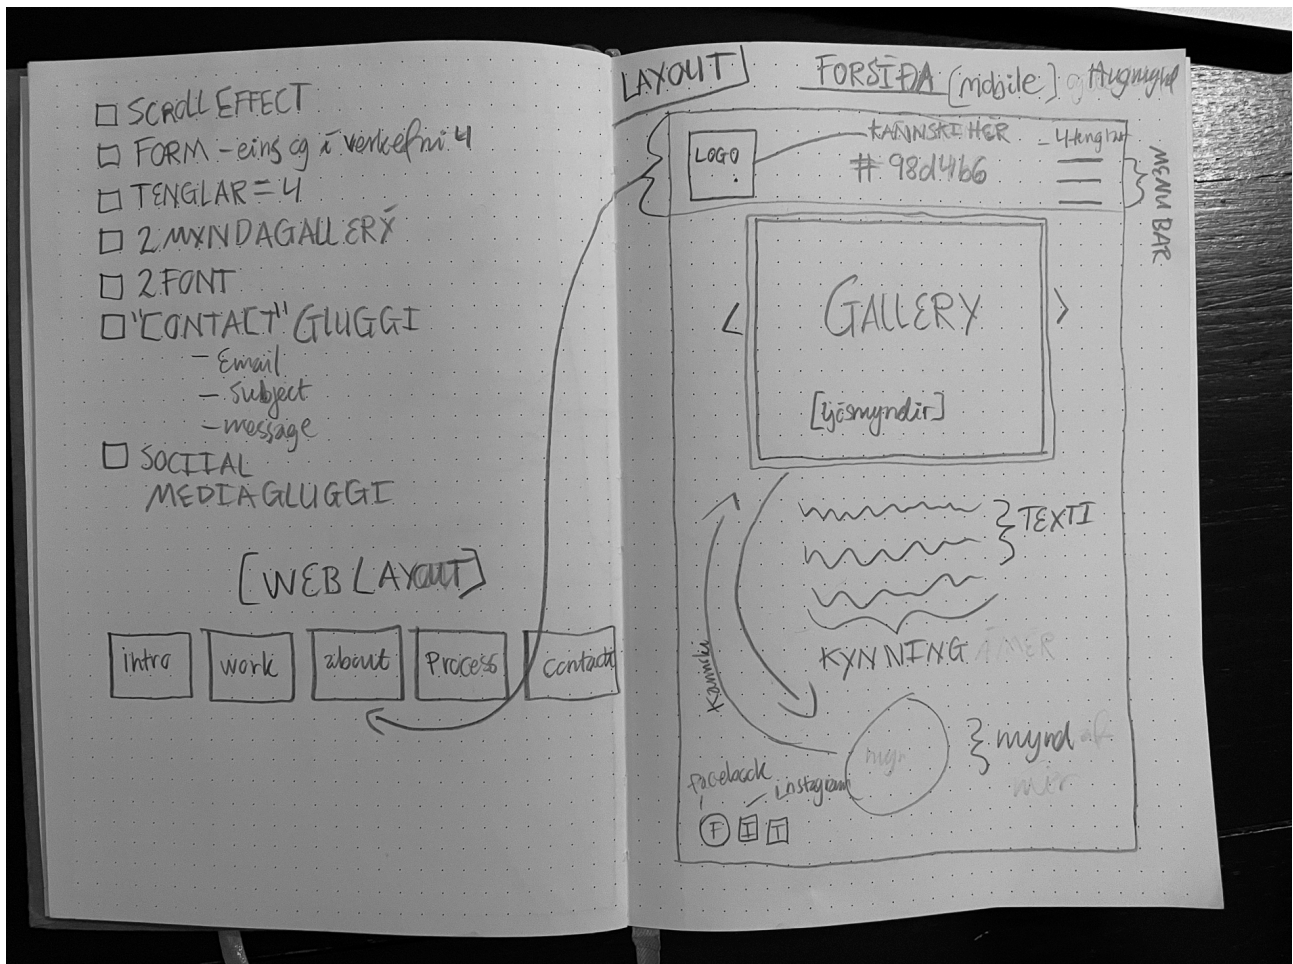 SCROLL EFFECT
FORM - eins og í verkefni 4
TENGLAR = 4
2 MYNDAGALLERÝ
2 FONT
"CONTACT" GLUGGI
- Email
- Subject
- message
SOCIIAL
MEDIAGLUGGI
[WEB LAYOUT]
intro
work
about
Process
contact
LAYOUT
FORSÍÐA [mobile]
LOGO
KANNSKI HER
- 4 tenglar
# 98d4b6
MENM BAR
GALLERY
[ljósmyndir]
< >
TEXTI
KYNNING
Kannski
mynd af
mér
facebook
instagram
F I T